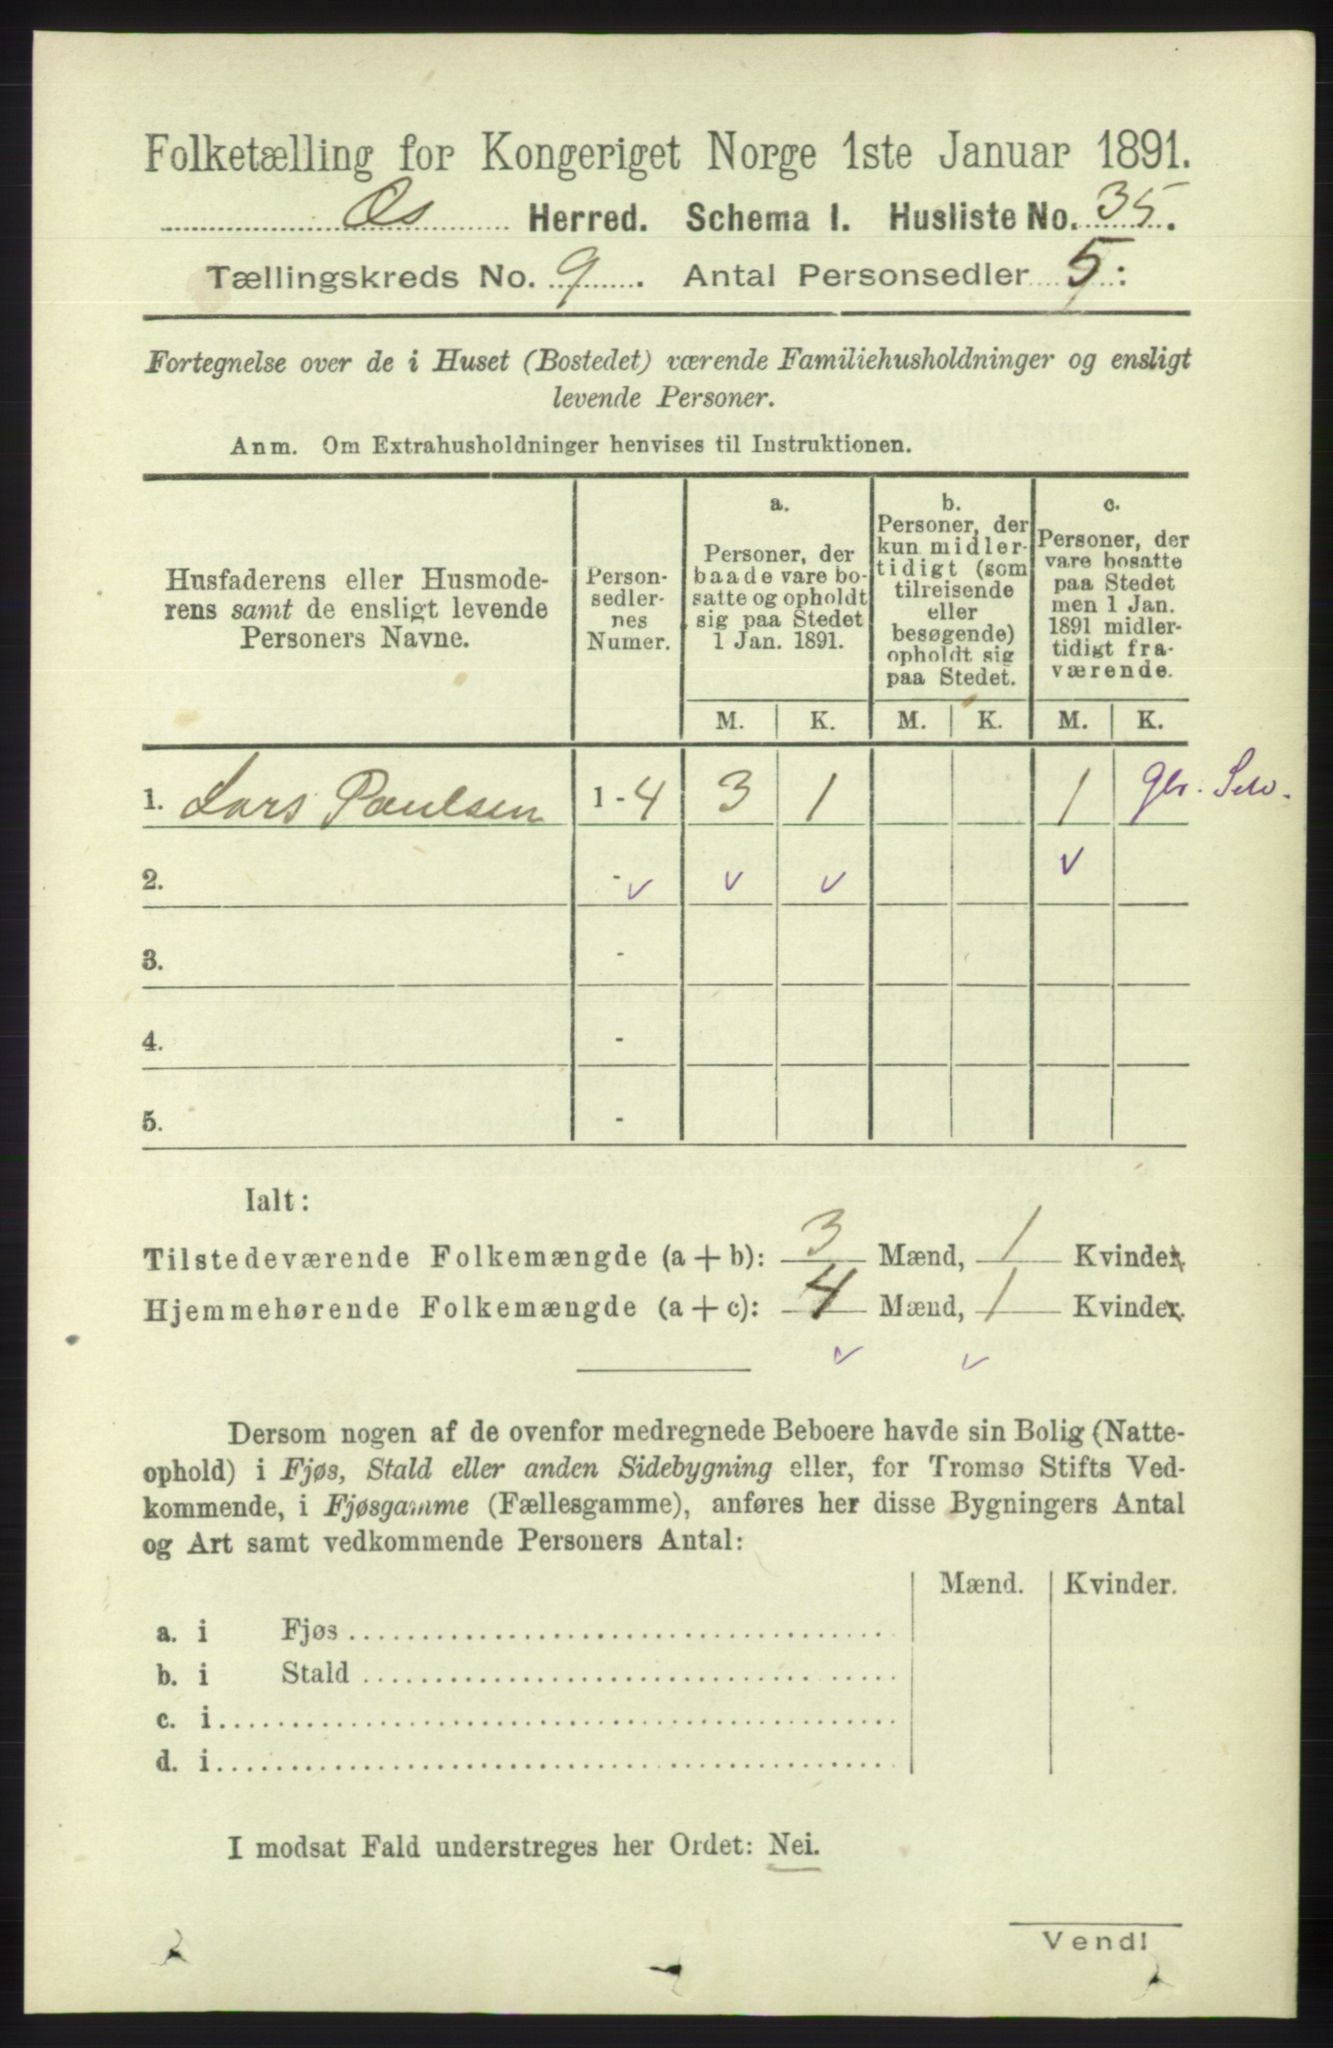 Folketælling for Kongeriget Norge 1ste Januar 1891.
Os Herred. Schema I. Husliste No. 35.
Tællingskreds No. 9. Antal Personsedler 5:
Fortegnelse over de i Huset (Bostedet) værende Familiehusholdninger og ensligt
levende Personer.
Anm. Om Extrahusholdninger henvises til Instruktionen.
Husfaderens eller Husmode-
rens samt de ensligt levende
Personers Navne.
Person-
sedler-
nes
Numer.
a.
Personer, der
baade vare bo-
satte og opholdt
sig paa Stedet
1 Jan. 1891.
b.
Personer, der
kun midler-
tidigt (som
tilreisende
eller
besøgende)
opholdt sig
paa Stedet.
c.
Personer, der
vare bosatte
paa Stedet
men 1 Jan.
1891 midler-
tidigt fra-
værende.
M. K. M. K. M. K.
1. Lars Paulsen 1 - 4 3 1 1
2. - v v v v
3. -
4. -
5. -
Ialt:
Tilstedeværende Folkemængde (a + b): 3 Mænd, 1 Kvinder.
Hjemmehørende Folkemængde (a + c): 4 Mænd, 1 Kvinder.
v v
Dersom nogen af de ovenfor medregnede Beboere havde sin Bolig (Natte-
ophold) i Fjøs, Stald eller anden Sidebygning eller, for Tromsø Stifts Ved-
kommende, i Fjøsgamme (Fællesgamme), anføres her disse Bygningers Antal
og Art samt vedkommende Personers Antal:
Mænd. Kvinder.
a. i Fjøs
b. i Stald
c. i
d. i
I modsat Fald understreges her Ordet: Nei.
Vend!